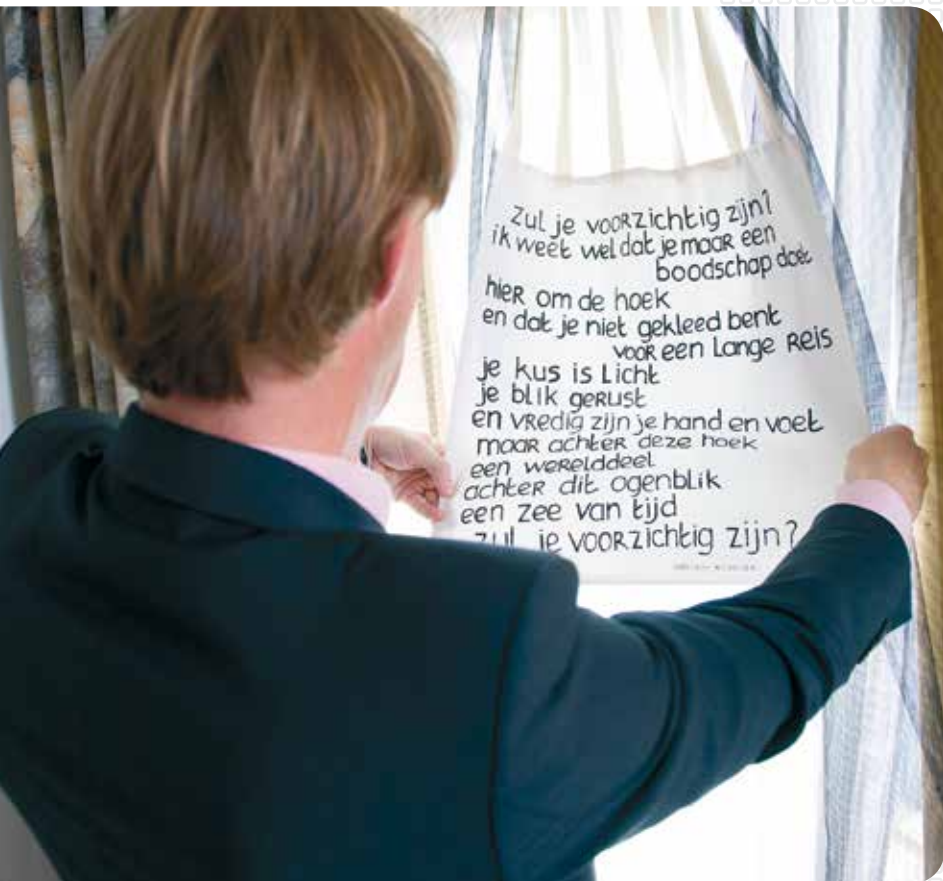 zul je vooRzichtig zijn?
ik weet wel dat je maaR een
boodschap doet
hieR om de hoek
en dat je niet gekleed bent
vooR een lange Reis
je kus is licht
je blik geRust
en vRedig zijn je hand en voet
maaR achteR deze hoek
een weRelddeel
achteR dit ogenblik
een zee van tijd
zul je vooRzichtig zijn?